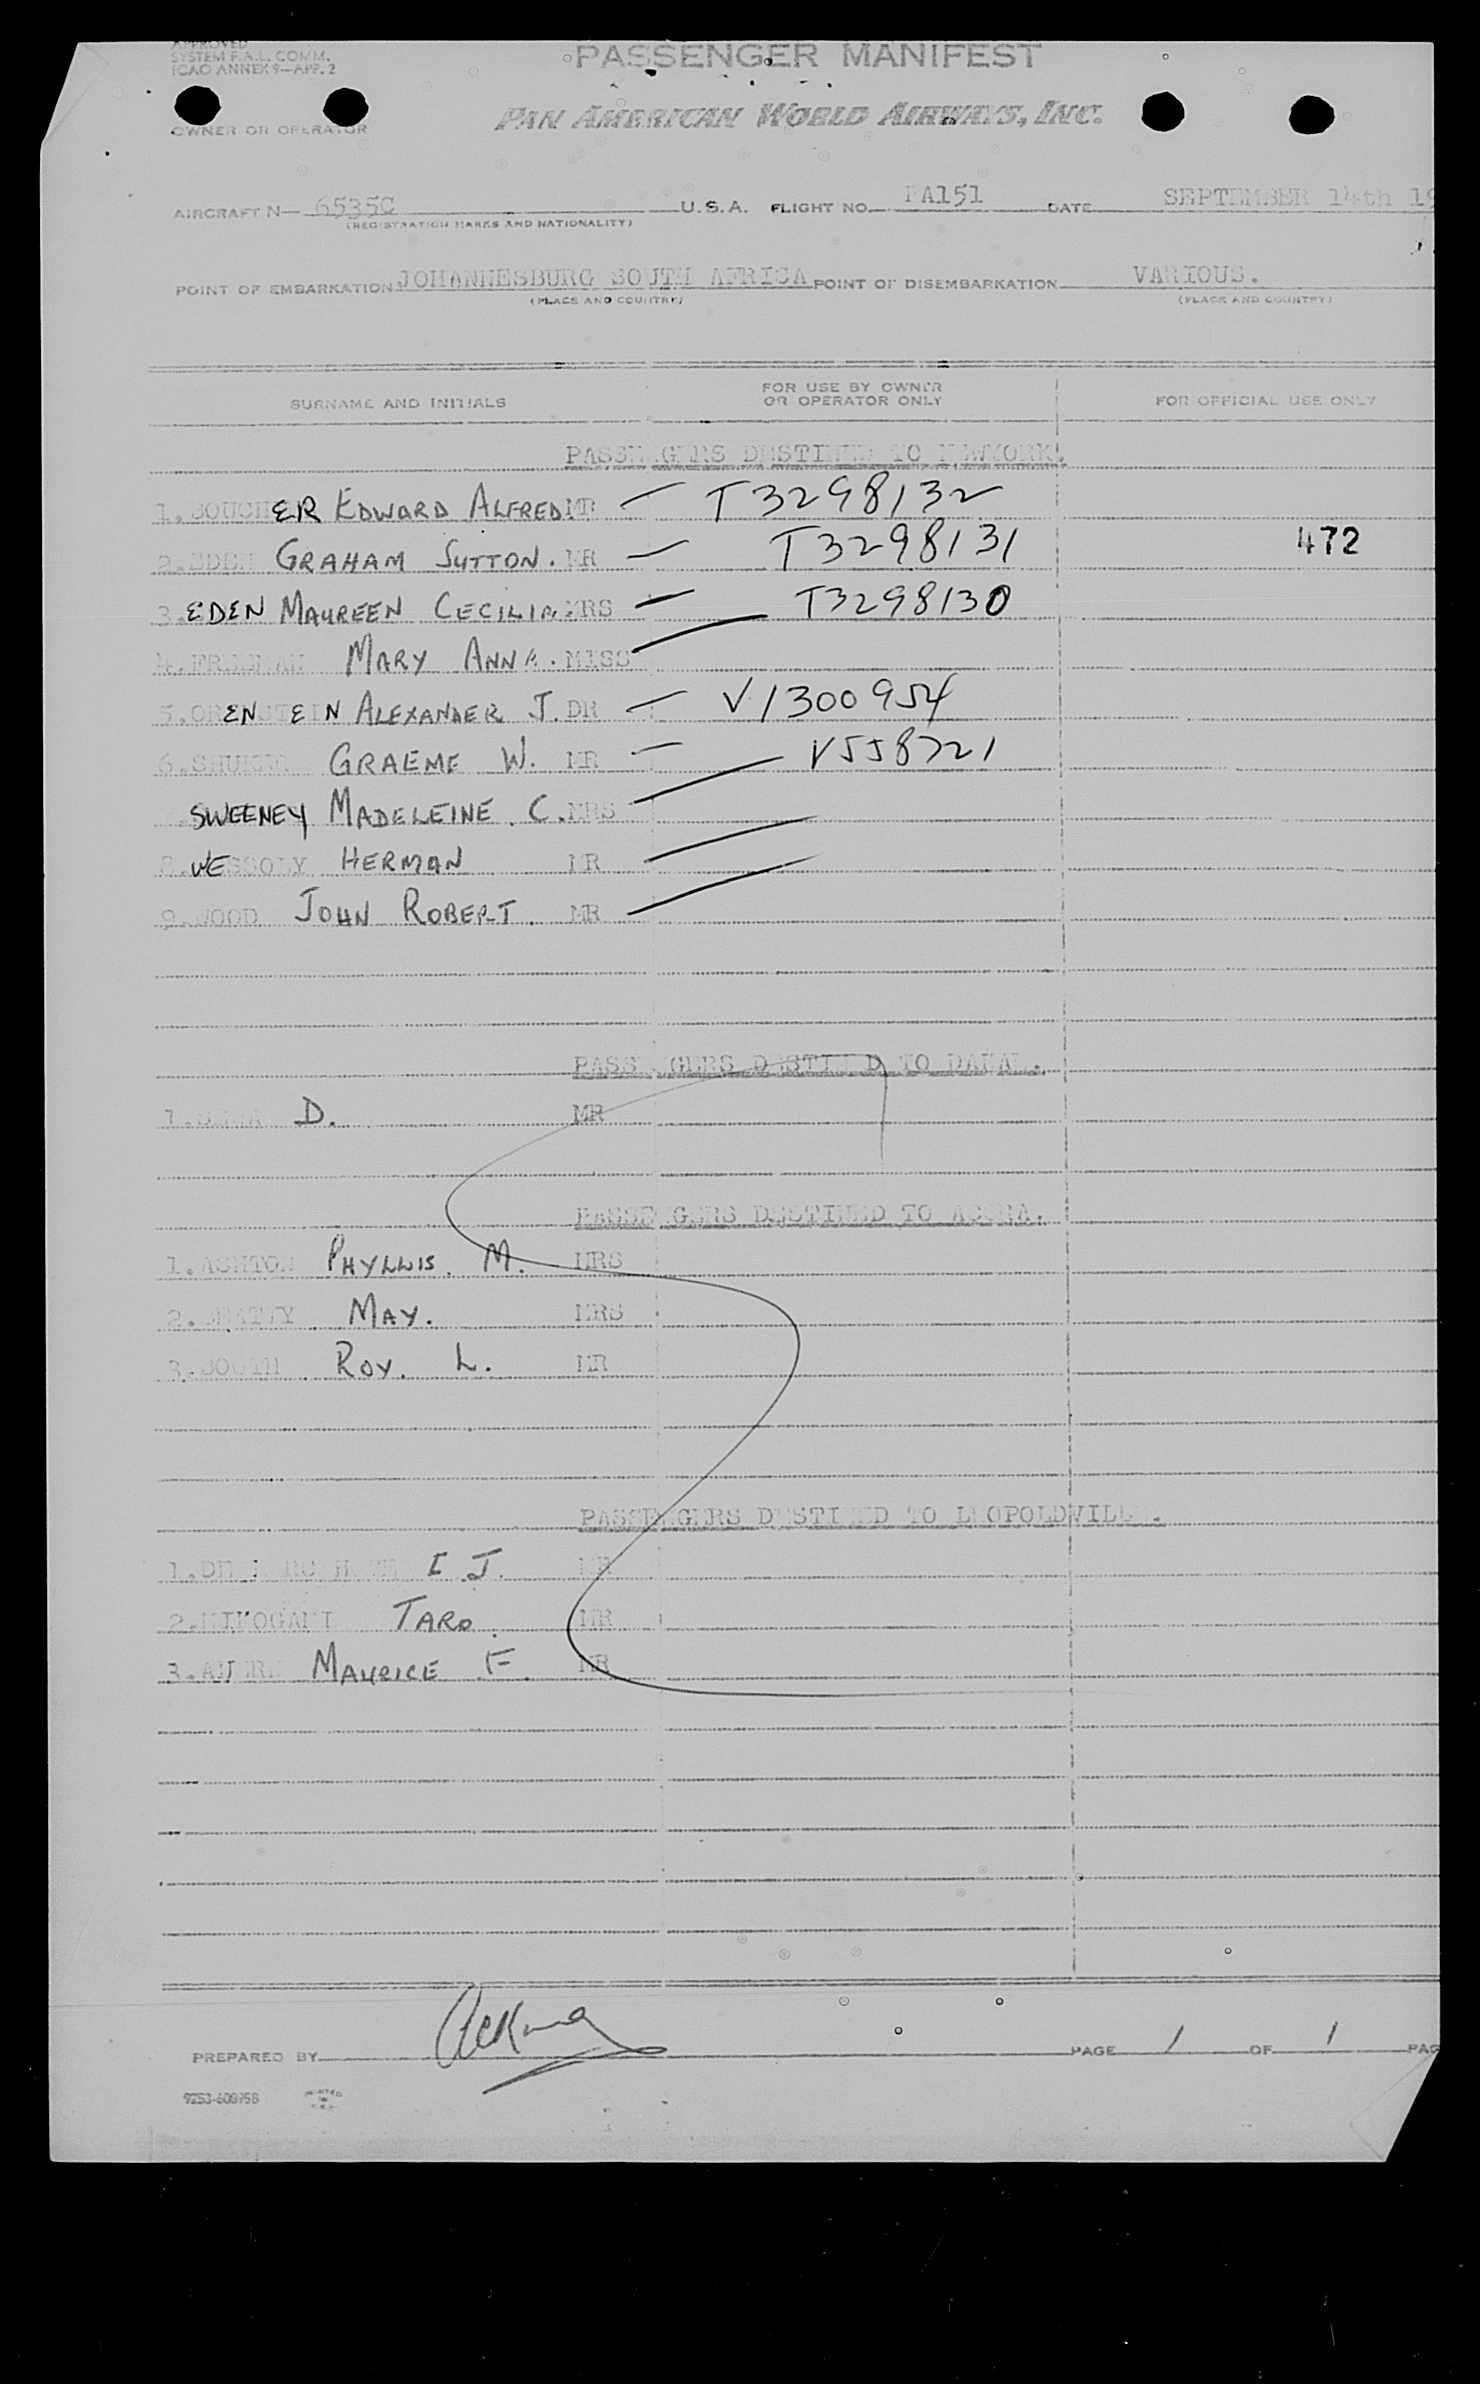 APPROVED
SYSTEM F.A.L. COMM.
ICAO ANNEX 9—APP. 2
PASSENGER MANIFEST
OWNER OR OPERATOR
PAN AMERICAN WORLD AIRWAYS, INC.
AIRCRAFT N— 6535C U.S.A. FLIGHT NO. PA151 DATE SEPTEMBER 14th 19
(REGISTRATION MARKS AND NATIONALITY)
POINT OF EMBARKATION JOHANNESBURG SOUTH AFRICA POINT OF DISEMBARKATION VARIOUS.
(PLACE AND COUNTRY) (PLACE AND COUNTRY)
SURNAME AND INITIALS FOR USE BY OWNER OR OPERATOR ONLY FOR OFFICIAL USE ONLY
PASSENGERS DESTINED TO NEWYORK.
1. BOUCHER EDWARD ALFRED. MR — T3298132
2. EDEN GRAHAM SUTTON. MR — T3298131 472
3. EDEN MAUREEN CECILIA. MRS — T3298130
4. FREEMAN MARY ANNA. MISS —
5. ORENSTEIN ALEXANDER J. DR — V1300954
6. GRAEME W. MR — V558721
SWEENEY MADELEINE. C. MRS —
8. WESSOLY HERMAN MR —
9. WOOD JOHN ROBERT. MR —
PASSENGERS DESTINED TO DAKAR.
1. D. MR
PASSENGERS DESTINED TO ACCRA.
1. ASHTON PHYLLIS. M. MRS
2. BEATTY MAY. MRS
3. BOOTH ROY. L. MR
PASSENGERS DESTINED TO LEOPOLDVILLE.
1. J. MR
2. TARO. MR
3. MAURICE F. MR
PREPARED BY PAGE 1 OF 1 PAG
9253-608758
PRINTED IN U.S.A.